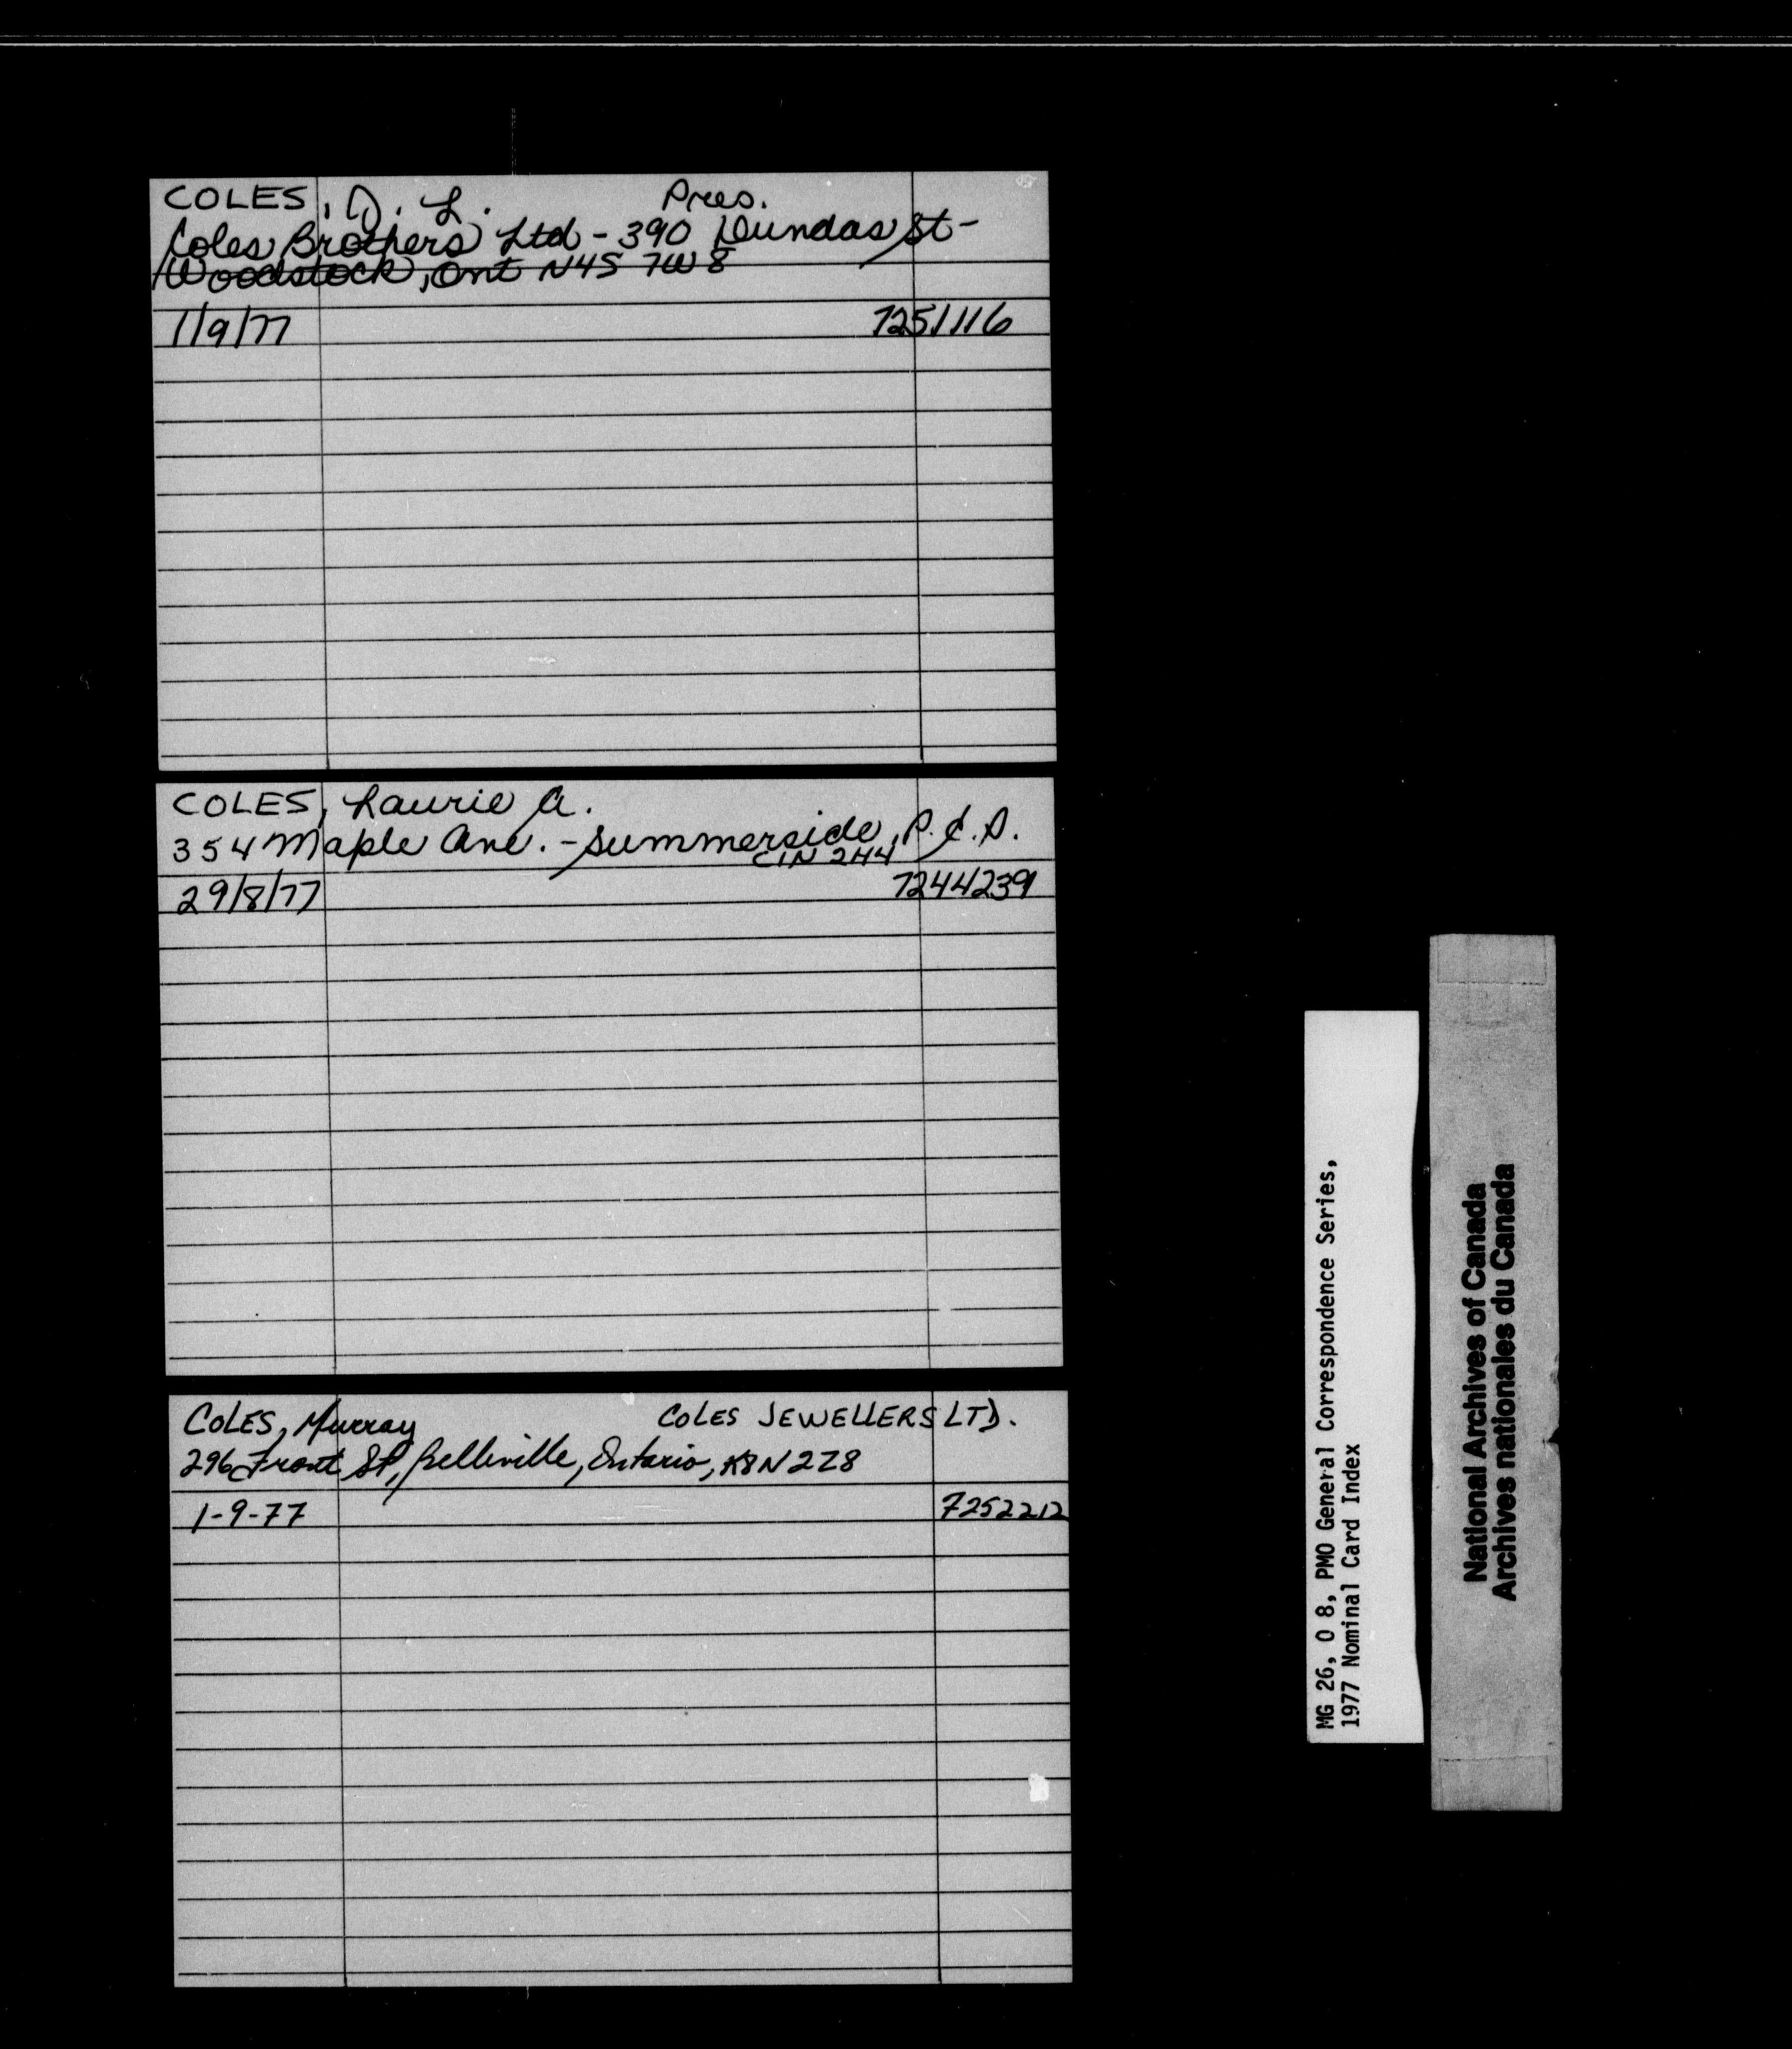 COLES, D. L. Pres.
Coles Brothers Ltd - 390 Dundas St -
Woodstock, Ont N4S 7W8
1/9/77 7251116
COLES, Laurie A.
354 Maple Ave. - Summerside, P.E.I.
C1N 2H4
29/8/77 7244239
COLES, Murray COLES JEWELLERS LTD.
296 Front St, Belleville, Ontario, K8N 2Z8
1-9-77 7252212
MG 26, O 8, PMO General Correspondence Series,
1977 Nominal Card Index
National Archives of Canada
Archives nationales du Canada